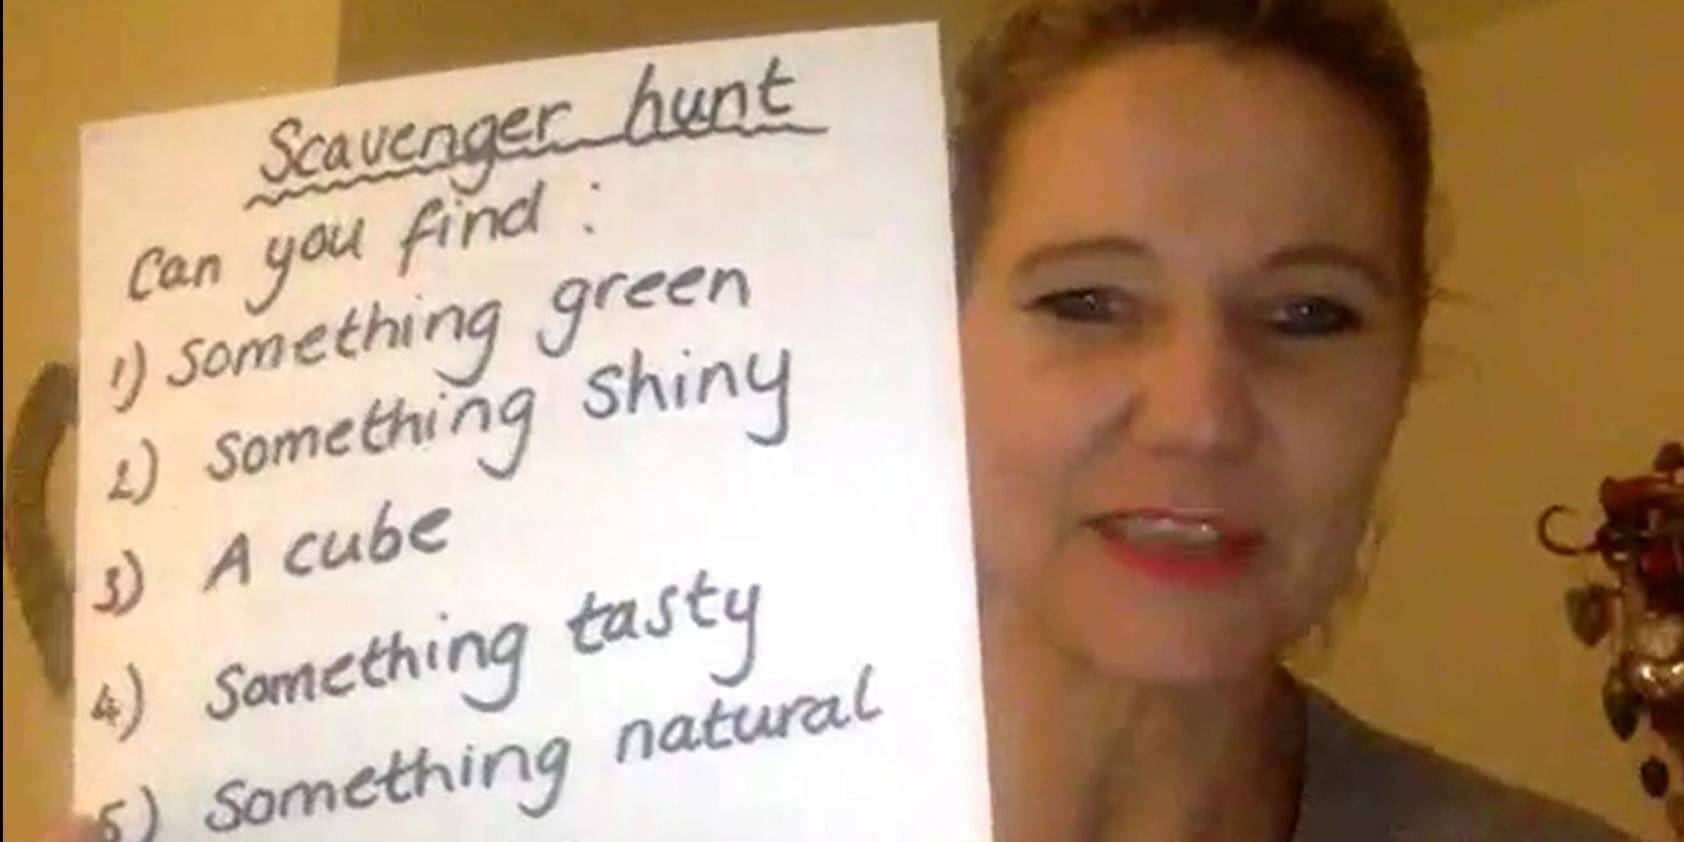 Scavenger hunt
Can you find:
1) Something green
2) Something shiny
3) A cube
4) Something tasty
5) Something natural